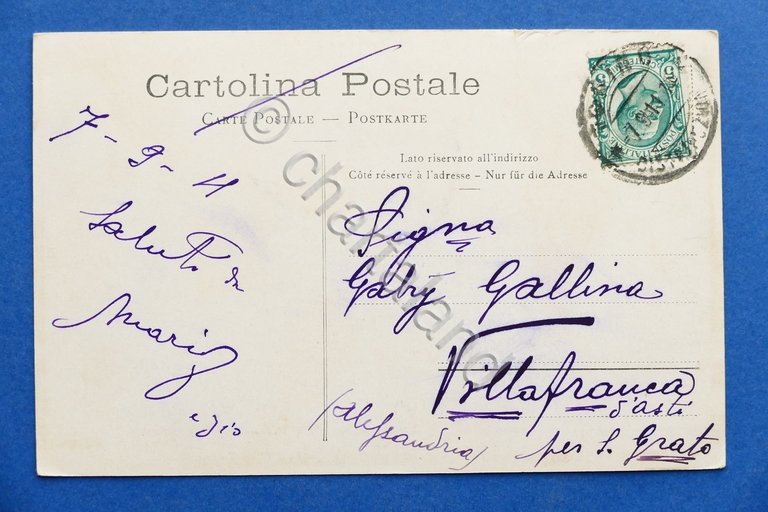 Cartolina Postale
CARTE POSTALE — POSTKARTE
Lato riservato all'indirizzo
Côté réservé à l'adresse - Nur für die Adresse
7-9-11
Saluti da
Mario
Signa
Gaby Gallina
Villafranca
d'asti
(Alessandria)
per S. Grato
© chartaland